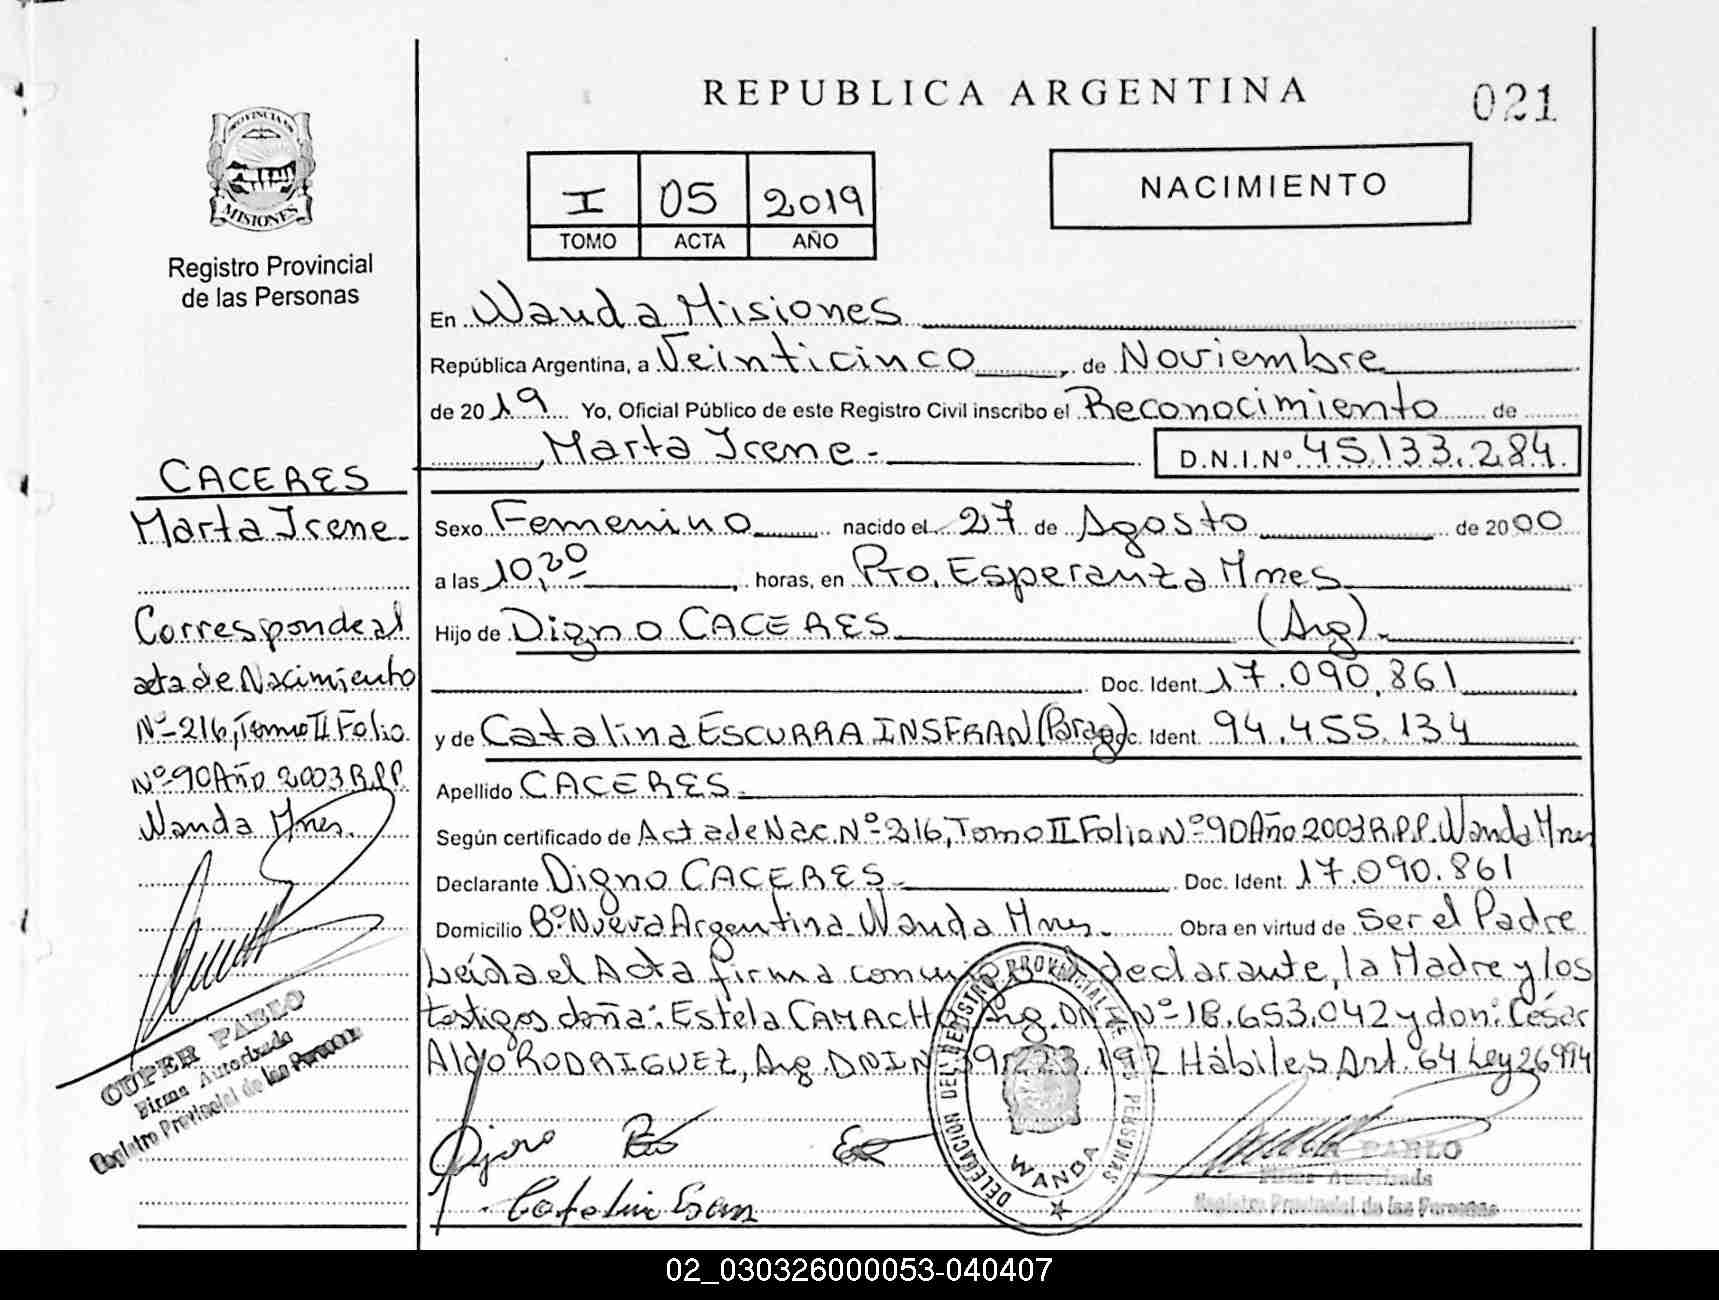 REPUBLICA ARGENTINA
021
PROVINCIA DE
MISIONES
Registro Provincial
de las Personas
I 05 2019
TOMO ACTA AÑO
NACIMIENTO
En Wanda Misiones
República Argentina, a Veinticinco, de Noviembre
de 2019 Yo, Oficial Público de este Registro Civil inscribo el Reconocimiento de
Marta Irene.- D.N.I.Nº 45.133.284.
CACERES
Marta Irene.
Correspondeal
acta de Nacimiento
Nº-216, Tomo II Folio
Nº-90 Año 2003 R.P.P.
Wanda Mnes.
Sexo Femenino nacido el 27 de Agosto de 2000
a las 10,20, horas, en Pto. Esperanza Mnes
Hijo de Digno CACERES (Arg).
Doc. Ident. 17.090.861
y de Catalina ESCURRA INSFRAN (Parag) Doc. Ident. 94.455.134
Apellido CACERES.
Según certificado de Acta de Nac. Nº-216, Tomo II Folio Nº-90 Año 2003 R.P.P. Wanda Mnes
Declarante Digno CACERES. Doc. Ident. 17.090.861
Domicilio Bº Nueva Argentina. Wanda Mnes. Obra en virtud de Ser el Padre
Leída el Acta firma conmigo el declarante, la Madre y los
testigos doña: Estela CAMACHO Arg. DNI Nº-18.653.042 y don: César
Aldo RODRIGUEZ, Arg. DNI Nº 39.223.192 Hábiles Art. 64 Ley 26994
CUPER PABLO
Firma Autorizada
Registro Provincial de las Personas
DELEGACION DEL REGISTRO PROVINCIAL DE LAS PERSONAS
WANDA
PABLO
Firma Autorizada
Registro Provincial de las Personas
02_030326000053-040407